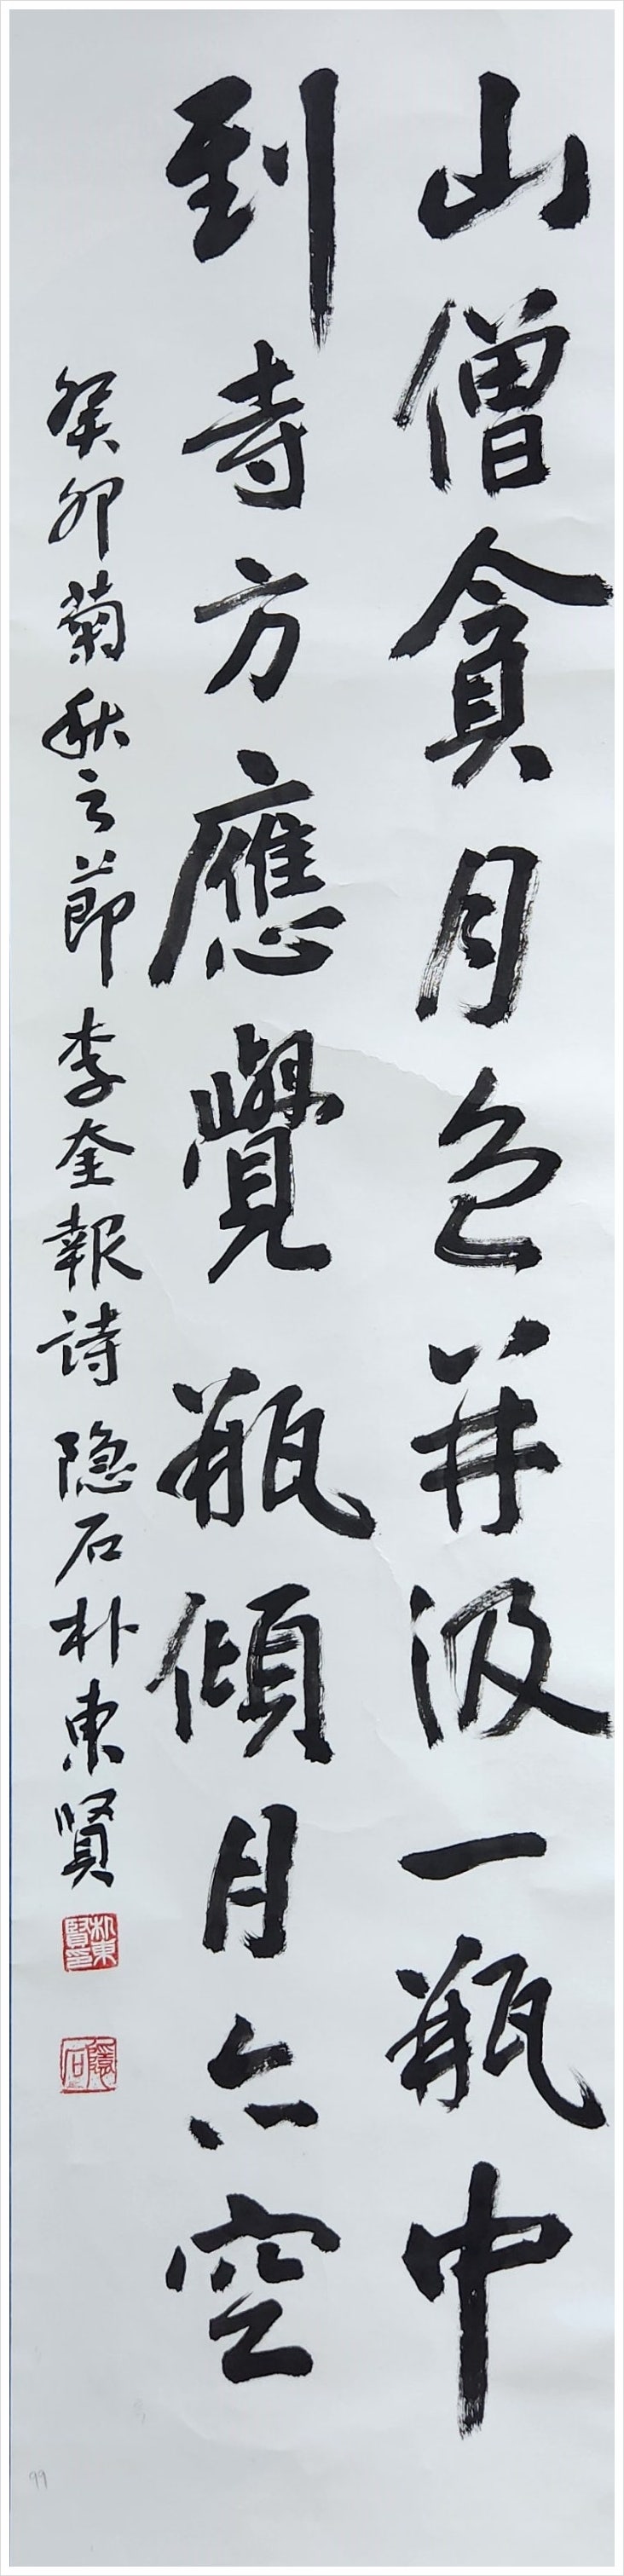 山僧貪月色并汲一瓶中
到寺方應覺瓶傾月亦空
癸卯菊秋之節 李奎報詩 隐石朴東賢
朴東賢印
隱石
99